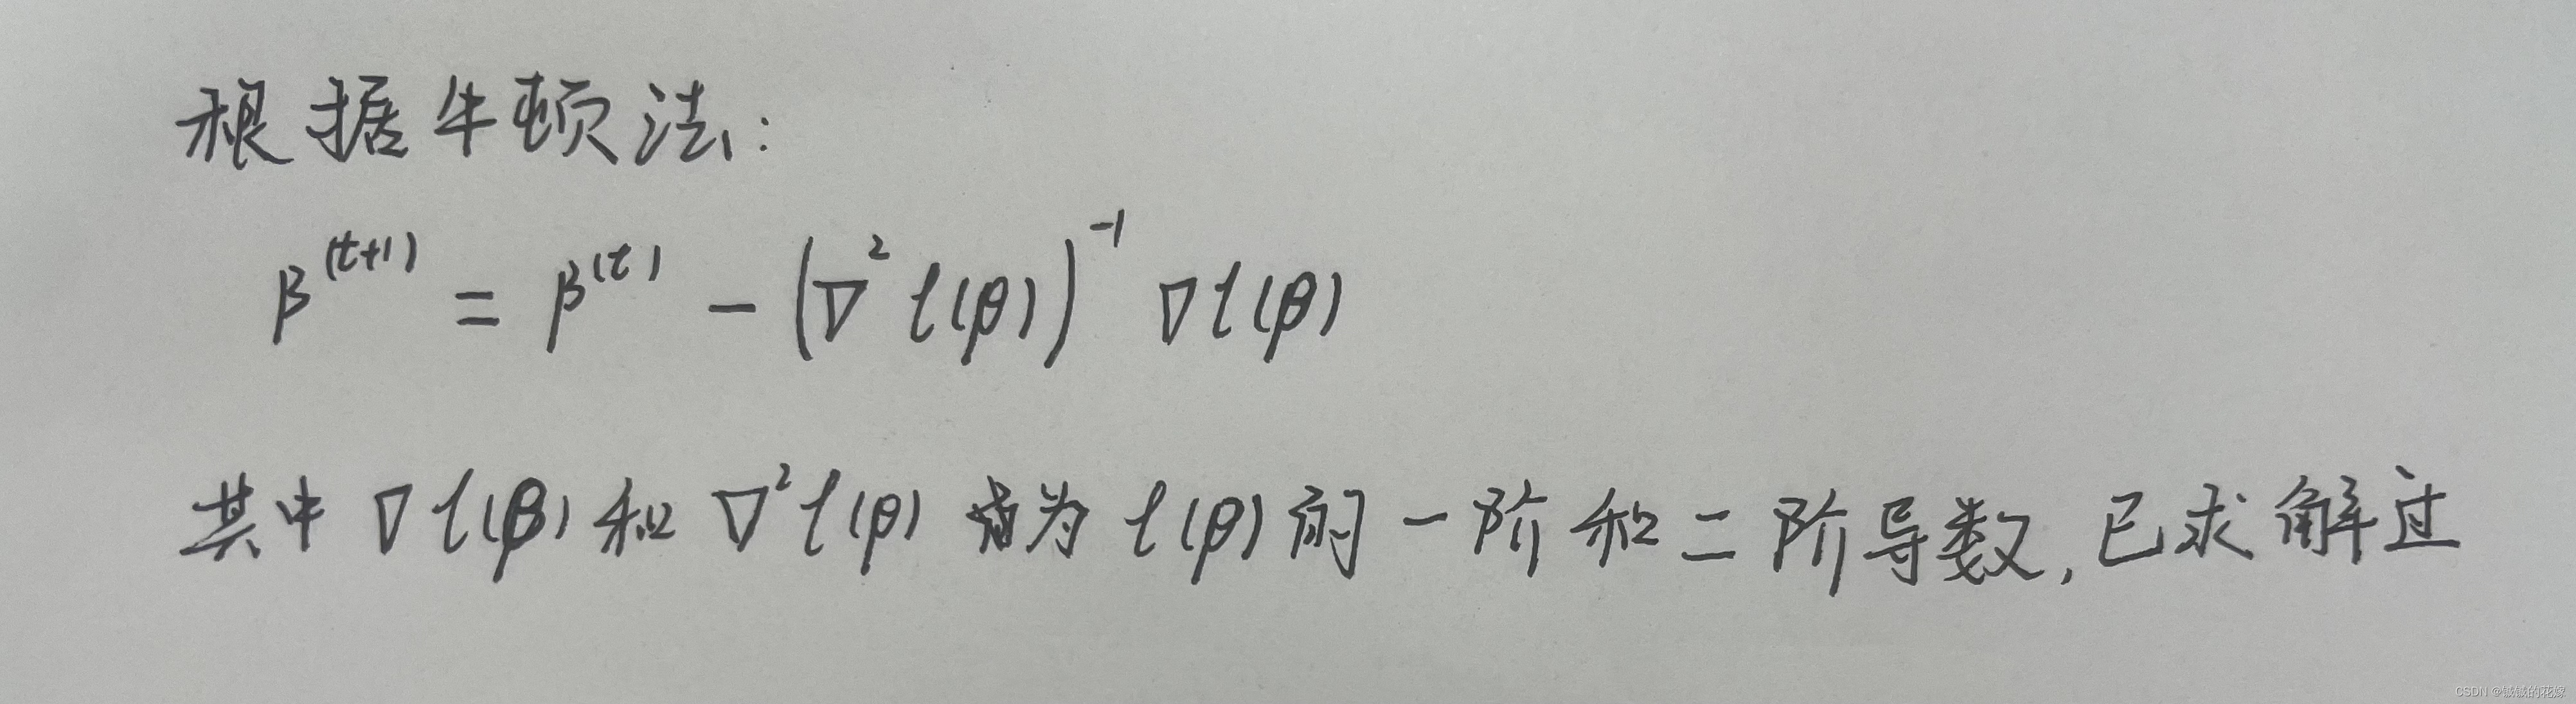 根据牛顿法:
β^(t+1) = β^(t) - (∇²l(β))^-1 ∇l(β)
其中 ∇l(β) 和 ∇²l(β) 为 l(β) 的一阶和二阶导数,已求解过
CSDN @铖铖的花嫁